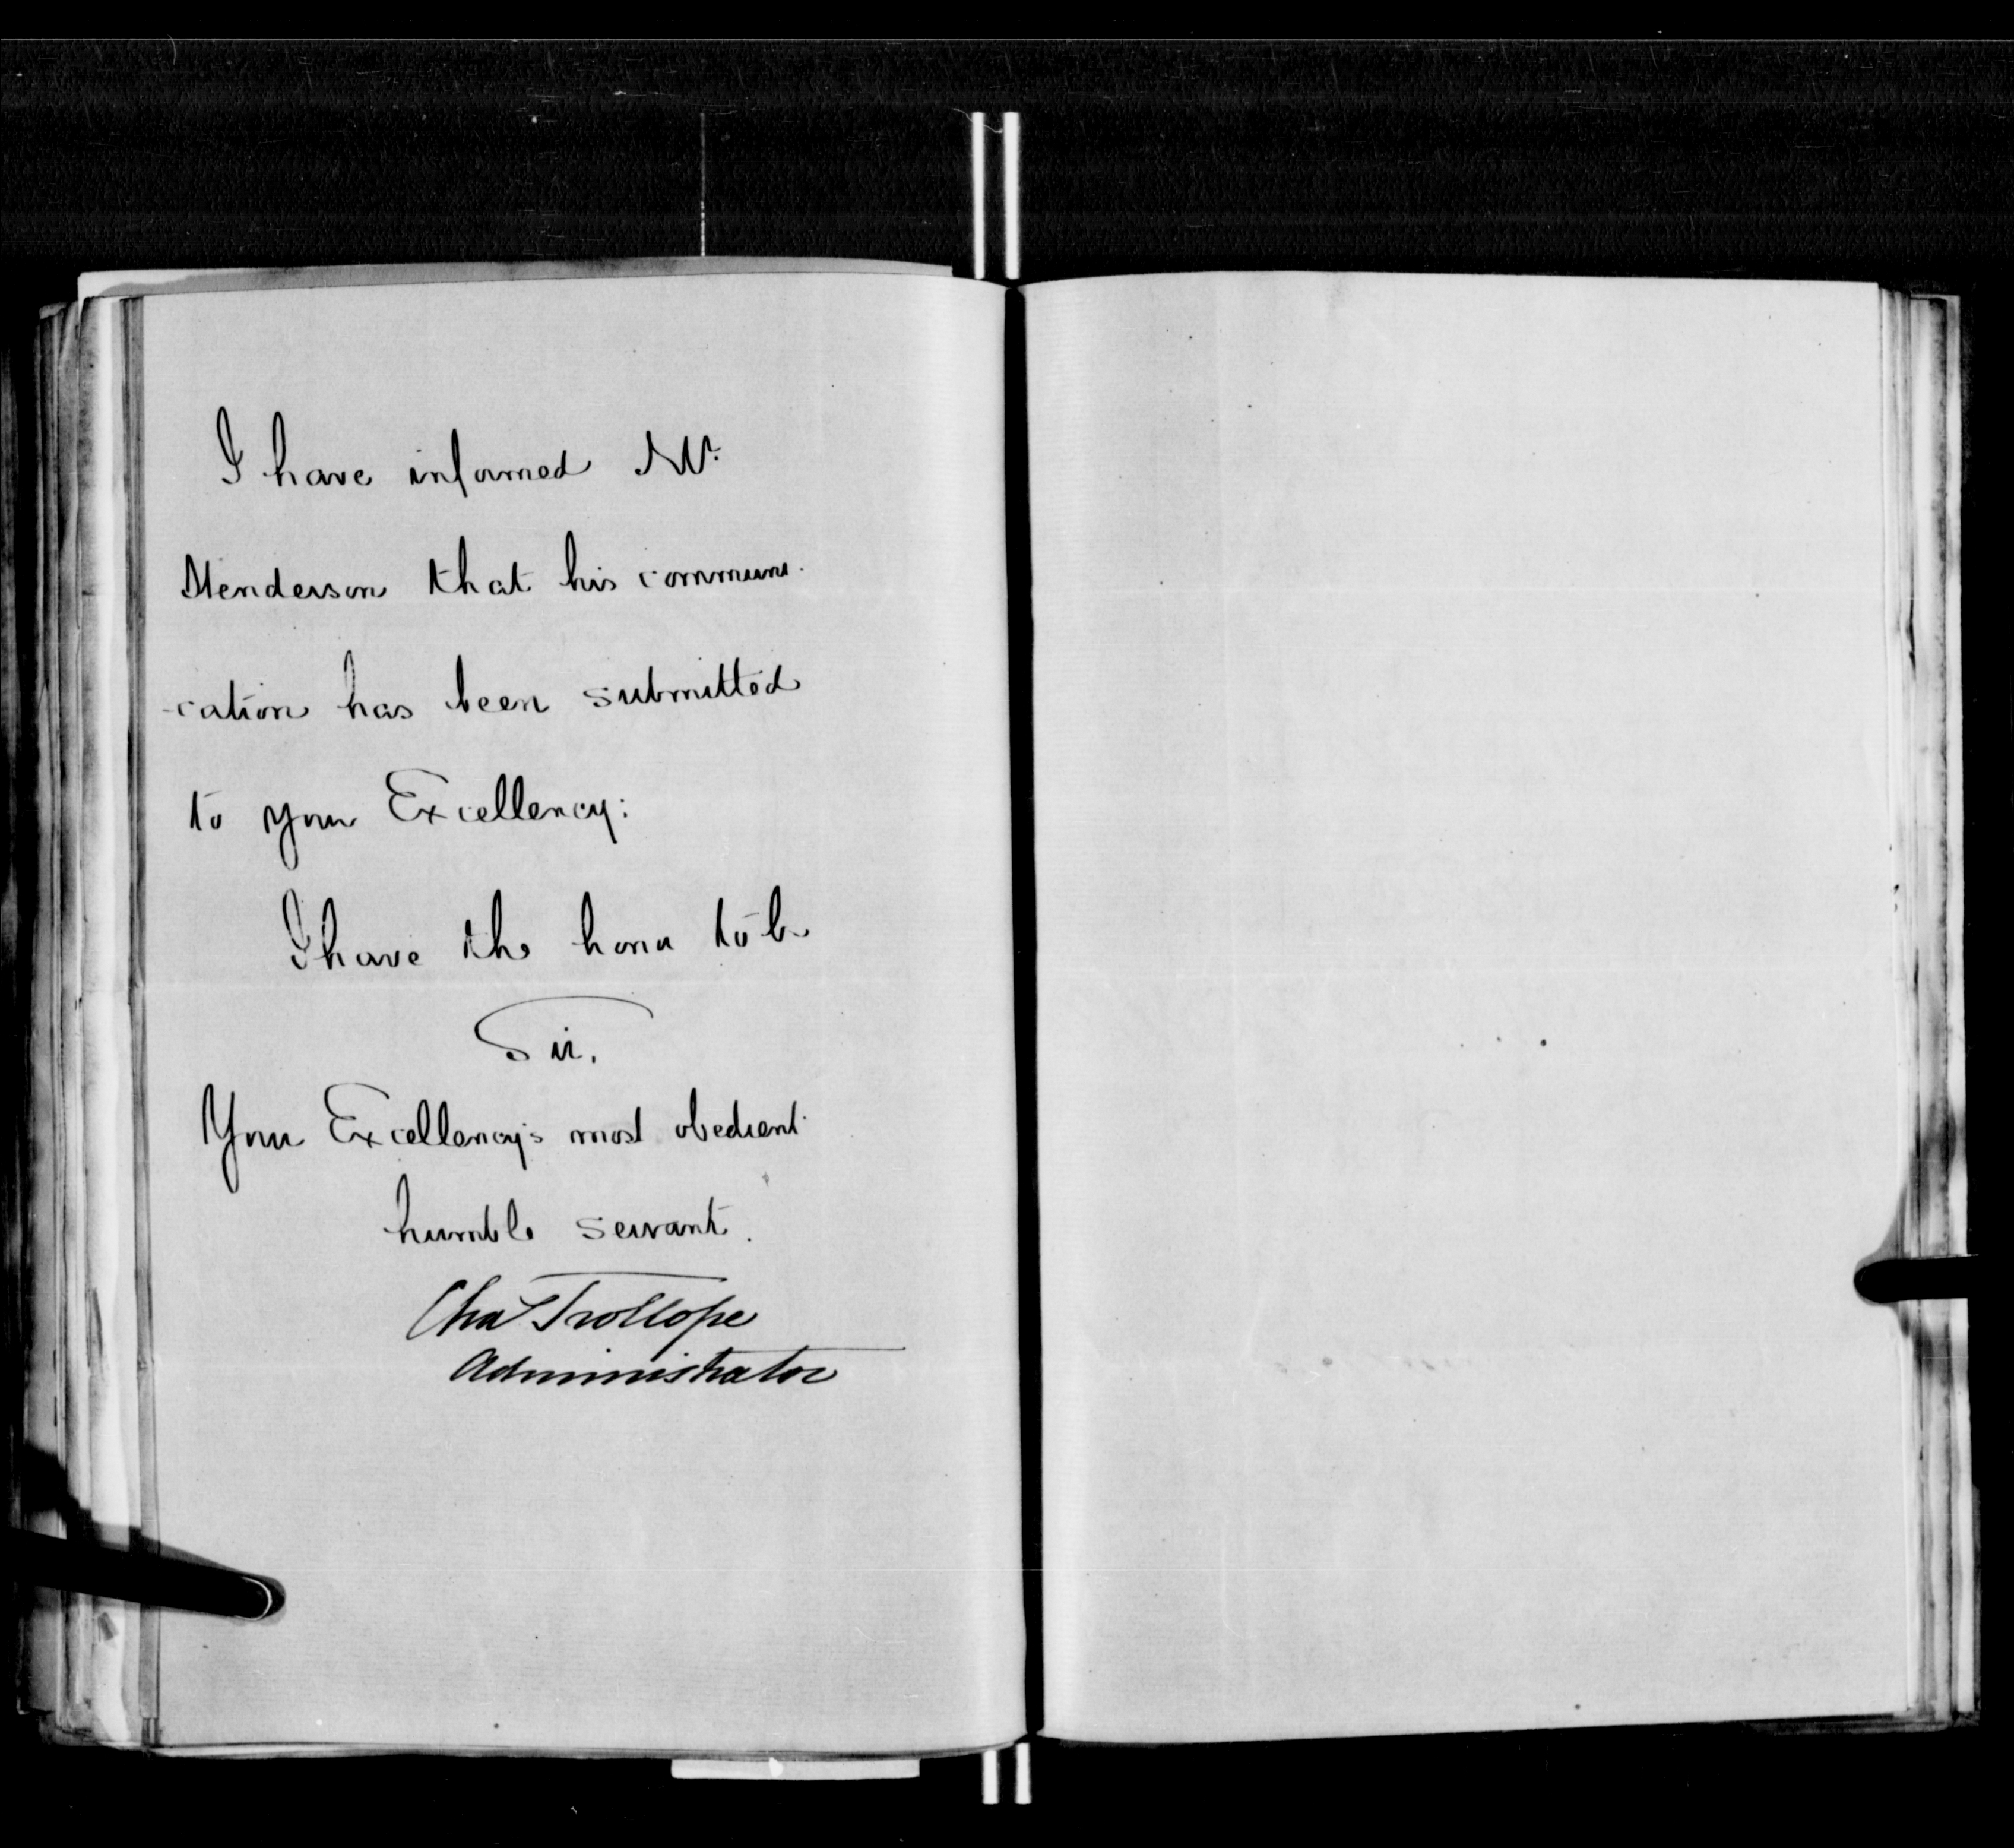 I have informed Mr.
Henderson that his communi-
-cation has been submitted
to your Excellency:
I have the honor to be
Sir,
Your Excellency's most obedient
humble servant.
Chas Trollope
Administrator